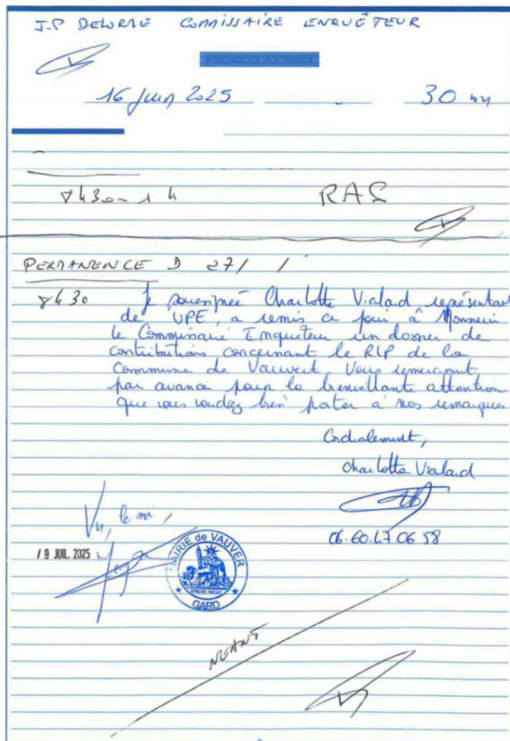 J.P DELORME COMMISSAIRE ENQUÊTEUR
16 Juin 2025 30
8h30 - 1 h RAS
PERMANENCE D 27/ /
8h30 Je soussignée Charlotte Vialad, représentant
de UPE, a remis ce jour à Monsieur
le Commissaire Enquêteur un dossier de
contributions concernant le RLP de la
Commune de Vauvert. Vous remerciant
par avance pour la bienveillante attention
que vous voudrez bien porter à nos remarques
Cordialement,
Charlotte Vialad
06.60.47.06 58
Vu, le
19 JUIL. 2025
MAIRIE de VAUVER
GARD
NEANT